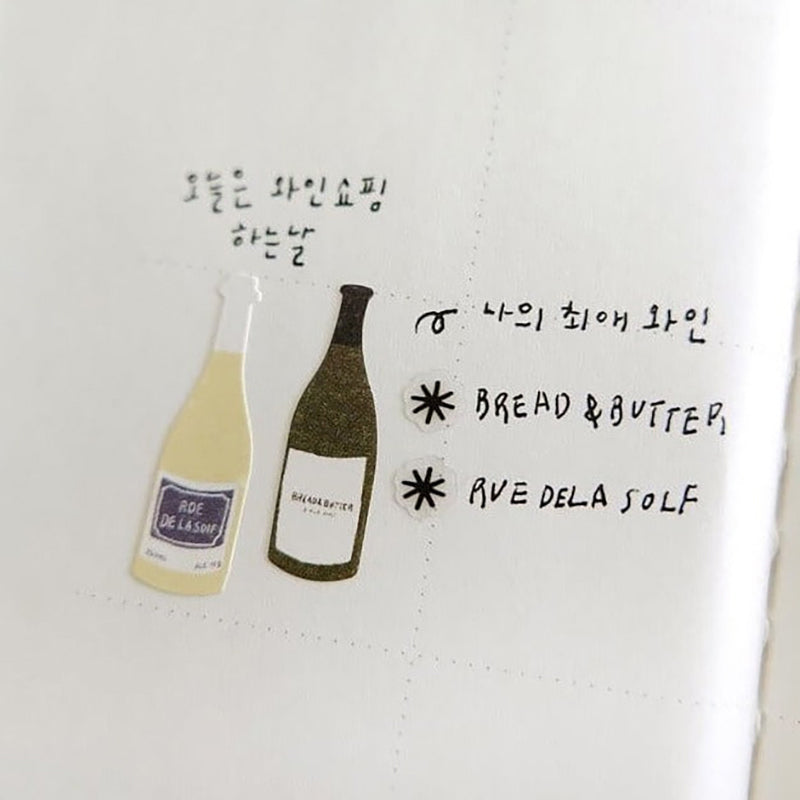 오늘은 와인쇼핑
하는날
나의 최애 와인
BREAD & BUTTER,
RUE DELA SOLF
RDE
DE LA SOIF
BREAD&BUTTER